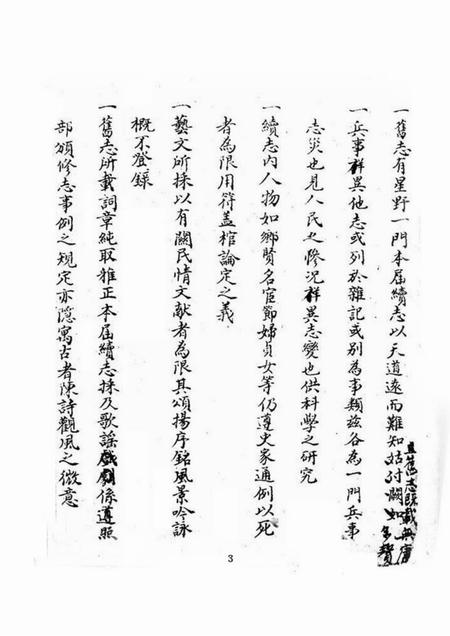 一舊志有星野一門本屆續志以天道遠而難知姑付闕如
且舊志既載無庸多贅
一兵事祥異他志或列於雜記或別為事類兹各為一門兵事
志災也見人民之慘況祥異志變也供科學之研究
一續志內人物如鄉賢名宦節婦貞女等仍遵史家通例以死
者為限用符盖棺論定之義
一藝文所採以有關民情文獻者為限其頌揚序銘風景吟詠
概不登錄
一舊志所載詞章純取雅正本屆續志採及歌謠戲劇係遵照
部頒修志事例之規定亦隱寓古者陳詩觀風之微意
3